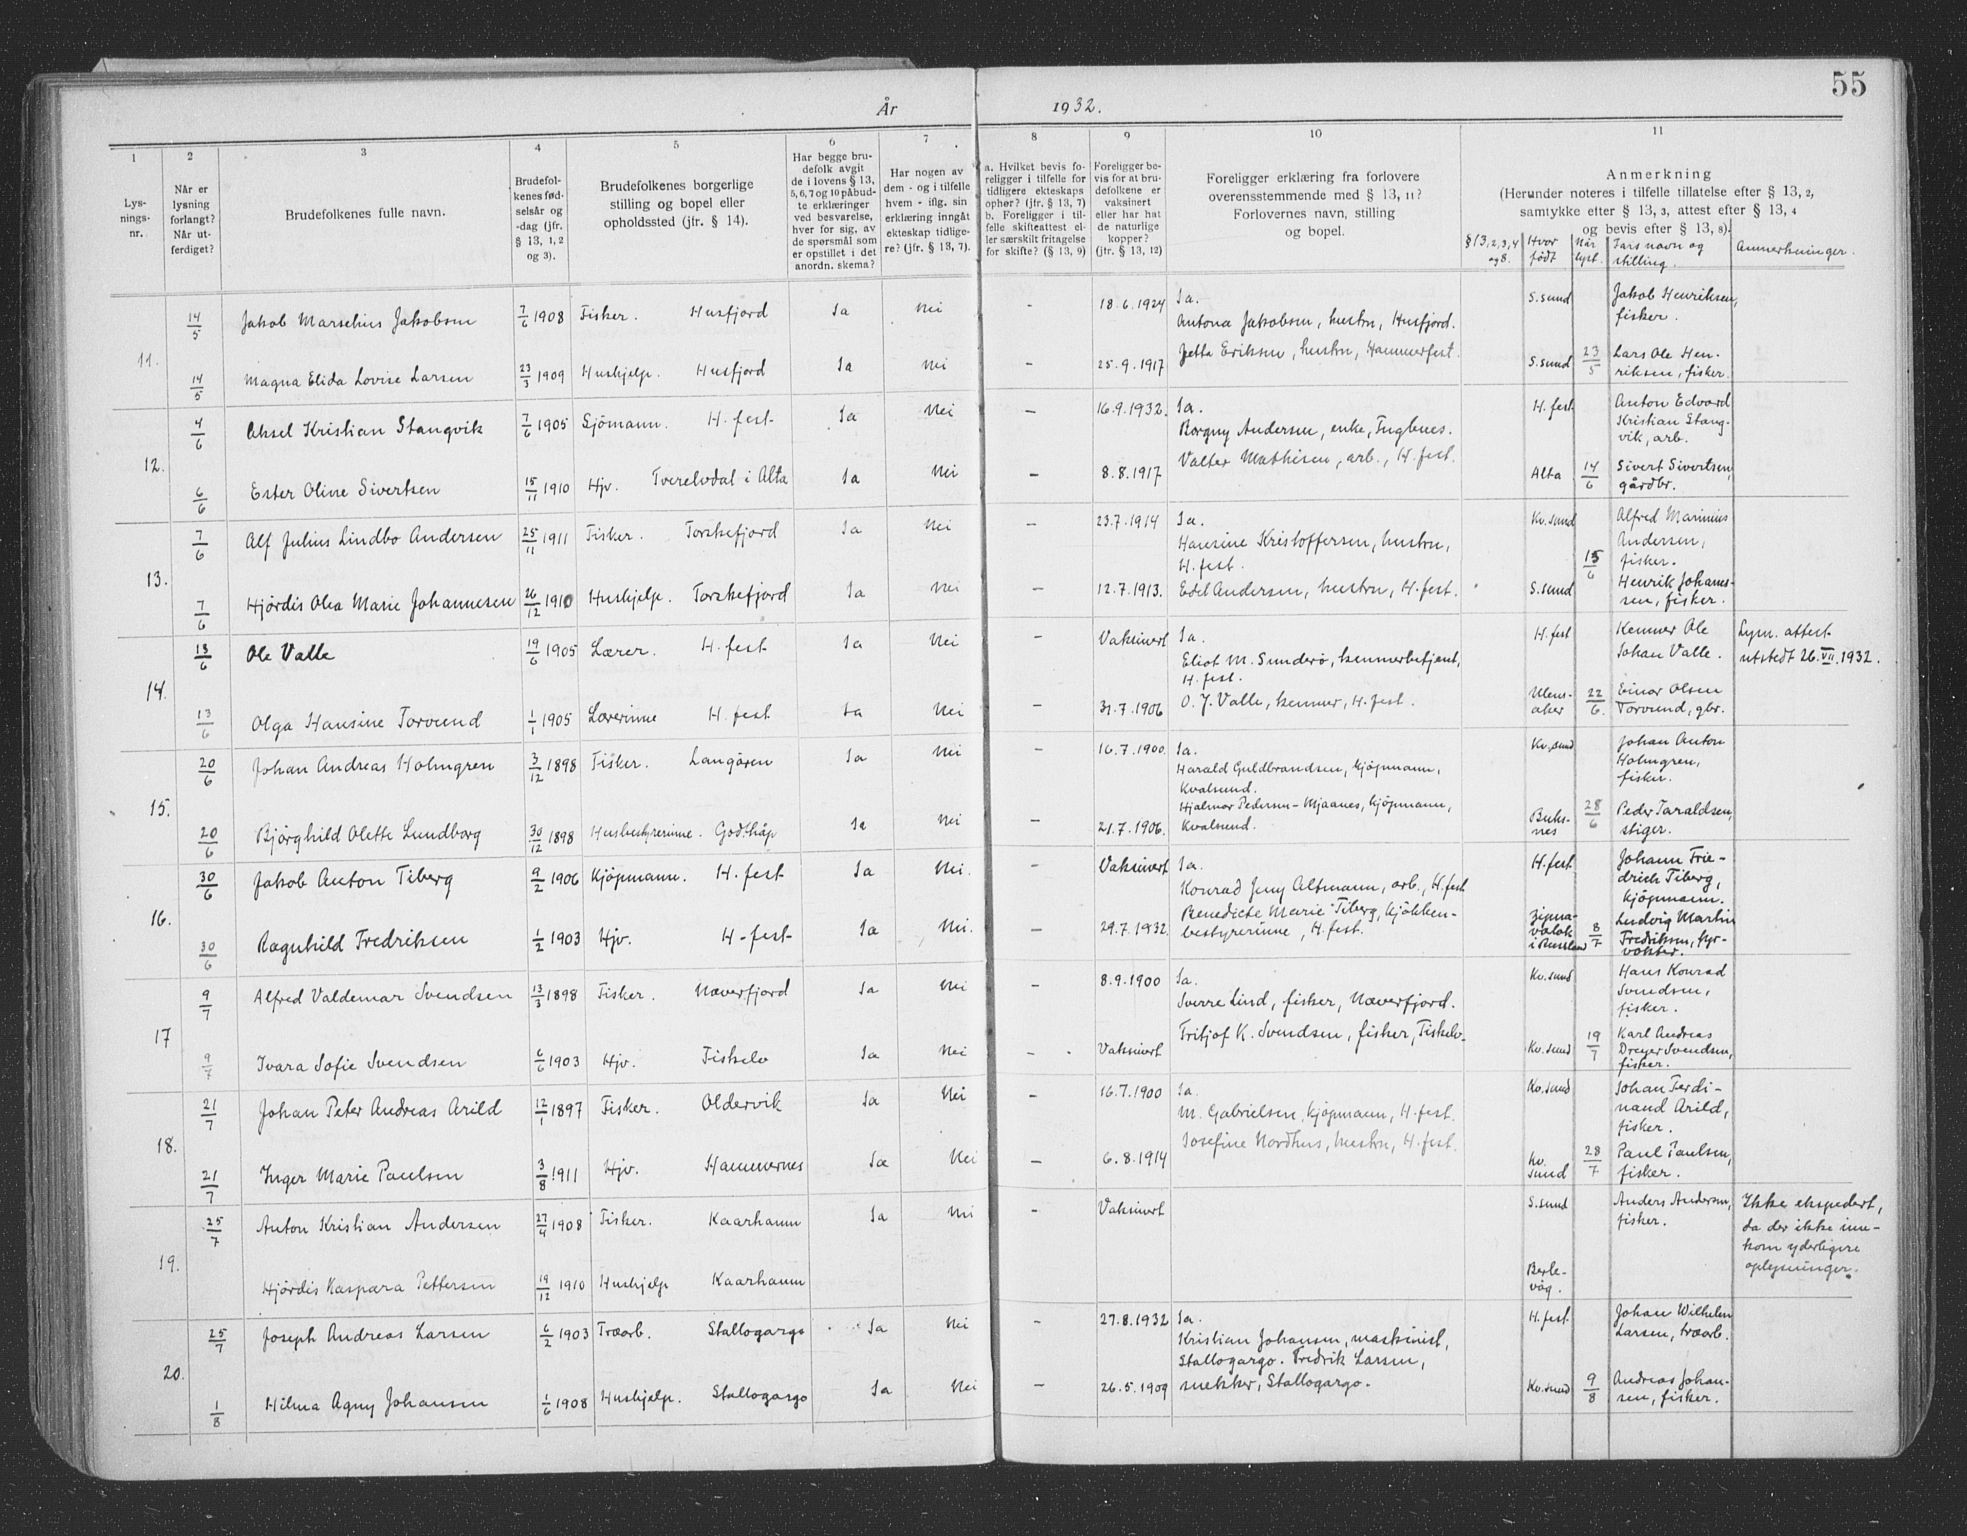 55
År 1932.
1 2 3 4 5 6 7 8 9 10 11
Lys-
nings-
nr.
Når er
lysning
forlangt?
Når ut-
ferdiget?
Brudefolkenes fulle navn.
Brudefol-
kenes fød-
selsår og
-dag (jfr.
§ 13, 1, 2
og 3).
Brudefolkenes borgerlige
stilling og bopel eller
opholdssted (jfr. § 14).
Har begge bru-
defolk avgit
de i lovens § 13,
5, 6, 7 og 10 påbud-
te erklæringer
ved besvarelse,
hver for sig, av
de spørsmål som
er opstillet i det
anordn. skema?
Har nogen av
dem - og i tilfelle
hvem - iflg. sin
erklæring inngått
ekteskap tidlige-
re? (jfr. § 13, 7).
a. Hvilket bevis fo-
religger i tilfelle for
tidligere ekteskaps
ophør? (jfr. § 13, 7)
b. Foreligger i til-
felle skifteattest el-
ler særskilt fritagelse
for skifte? (§ 13, 9)
Foreligger be-
vis for at bru-
defolkene er
vaksinert
eller har hat
de naturlige
kopper?
(jfr. § 13, 12)
Foreligger erklæring fra forlovere
overensstemmende med § 13, 11?
Forlovernes navn, stilling
og bopel.
Anmerkning
(Herunder noteres i tilfelle tillatelse efter § 13, 2,
samtykke efter § 13, 3, attest efter § 13, 4
og bevis efter § 13, 8).
§ 13, 2, 3, 4
og 8.
Hvor
født
Når
lyst.
Fars navn og
stilling.
Anmerkninger.
11.
14/5 Jakob Marselius Jakobsen 7/6 1908 Fisker. Husfjord Ja Nei - 18.6.1924 Ja.
Antona Jakobsen, hustru, Husfjord.
S.sund Jakob Henriksen,
fisker.
14/5 Magna Elida Lovise Larsen 23/3 1909 Hushjelp. Husfjord Ja Nei - 25.9.1917 Jetta Eriksen, hustru, Hammerfest.
S.sund 23/5 Lars Ole Hen-
riksen, fisker.
12.
4/6 Aksel Kristian Stangvik 7/6 1905 Sjömann. H.fest Ja Nei - 16.9.1932. Ja.
Borgny Andersen, enke, Fuglenes.
H.fest Anton Edvard
Kristian Stang-
vik, arb.
6/6 Ester Oline Sivertsen 15/11 1910 Hjv. Tverelvdal i Alta Ja Nei - 8.8.1917 Valter Mathisen, arb., H.fest.
Alta 14/6 Sivert Sivertsen,
gårdbr.
13.
7/6 Alf Julius Lindbo Andersen 25/11 1911 Fisker. Torskefjord Ja Nei - 23.7.1914 Ja.
Hansine Kristoffersen, hustru,
H.fest.
Kv.sund Alfred Marinius
Andersen,
fisker.
7/6 Hjördis Olea Marie Johannesen 26/12 1910 Hushjelp. Torskefjord Ja Nei - 12.7.1913. Edel Andersen, hustru, H.fest.
S.sund 15/6 Henrik Johanes-
sen, fisker.
14.
13/6 Ole Valle 19/6 1905 Lærer. H.fest Ja Nei - Vaksinert Ja.
Eliot M. Sunderö, kemnerbetjent,
H.fest.
H.fest Kemner Ole
Johan Valle.
Lysn. attest
utstedt 26.VII.1932.
13/6 Olga Hansine Torvund 1/1 1905 Lærerinne H.fest Ja Nei - 31.7.1906 O.J. Valle, kemner, H.fest.
Ulens-
aker 22/6. Einar Olsen
Torvund, gbr.
15.
20/6 Johan Andreas Holmgren 3/12 1898 Fisker. Langören Ja Nei - 16.7.1900. Ja.
Harald Guldbrandsen, kjöpmann,
Kvalsund.
Kv.sund Johan Anton
Holmgren,
fisker.
20/6 Bjørghild Olette Lundborg 30/12 1898 Husbestyrerinne. Godthåp Ja Nei - 21.7.1906. Hjalmar Pedersen-Mjaanes, kjöpmann,
Kvalsund.
Buks-
nes 28/6 Peder Taraldsen,
stiger.
16.
30/6 Jakob Anton Tiberg 9/2 1906 Kjöpmann. H.fest Ja Nei. Vaksinert Ja.
Konrad Jeny Altmann, arb., H.fest
H.fest. Johann Frie-
drich Tiberg,
kjöpmann.
30/6 Ragnhild Fredriksen 1/2 1903 Hjv. H-fest Ja Nei. - 29.7.1932. Benedicte Marie Tiberg, kjökken-
bestyrerinne, H.fest.
i Russland 8/7 Ludvig Martin
Fredriksen, fyr-
vokter.
17
9/7 Alfred Valdemar Svendsen 13/3 1898 Fisker. Næverfjord Ja Nei - 8.9.1900 Ja.
Sverre Lind, fisker, Næverfjord.
Kv.sund Hans Konrad
Svendsen,
fisker.
9/7 Ivara Sofie Svendsen 6/6 1903 Hjv. Fiskelv Ja Nei - Vaksinert Fritjof K. Svendsen, fisker, Fiskelv.
Kv.sund 19/7 Karl Andreas
Dreyer Svendsen,
fisker.
18.
21/7 Johan Peter Andreas Arild 12/1 1897 Fisker. Oldervik Ja Nei - 16.7.1900 Ja.
M. Gabrielsen, kjöpmann, H.fest.
Kv.sund Johan Ferdi-
nand Arild,
fisker.
21/7 Inger Marie Paulsen 3/8 1911 Hjv. Hammernes Ja Nei - 6.8.1914 Josefine Nordhus, hustru, H.fest.
Kv.
sund 28/7 Paul Paulsen,
fisker.
19.
25/7 Anton Kristian Andersen 27/4 1908 Fisker. Kaarhamn Ja Nei - Vaksinert
S.sund Anders Andersen,
fisker.
Ikke ekspedert,
da der ikke inn-
kom yderligere
oplysninger.
Hjördis Kaspara Pettersen 19/12 1910 Hushjelp Kaarhamn
Berle-
våg.
20.
25/7 Joseph Andreas Larsen 6/2 1903 Træarb. Stallogargo Ja Nei - 27.8.1932 Ja.
Kristian Johansen, maskinist,
Stallogargo. Fredrik Larsen,
H.fest. Johan Wilhelm
Larsen, træarb.
1/8 Hilma Agny Johansen 1/6 1908 Hushjelp. Stallogargo Ja Nei - 26.5.1909 snekker, Stallogargo.
Kv.sund 9/8 Andreas Johan-
sen, fisker.